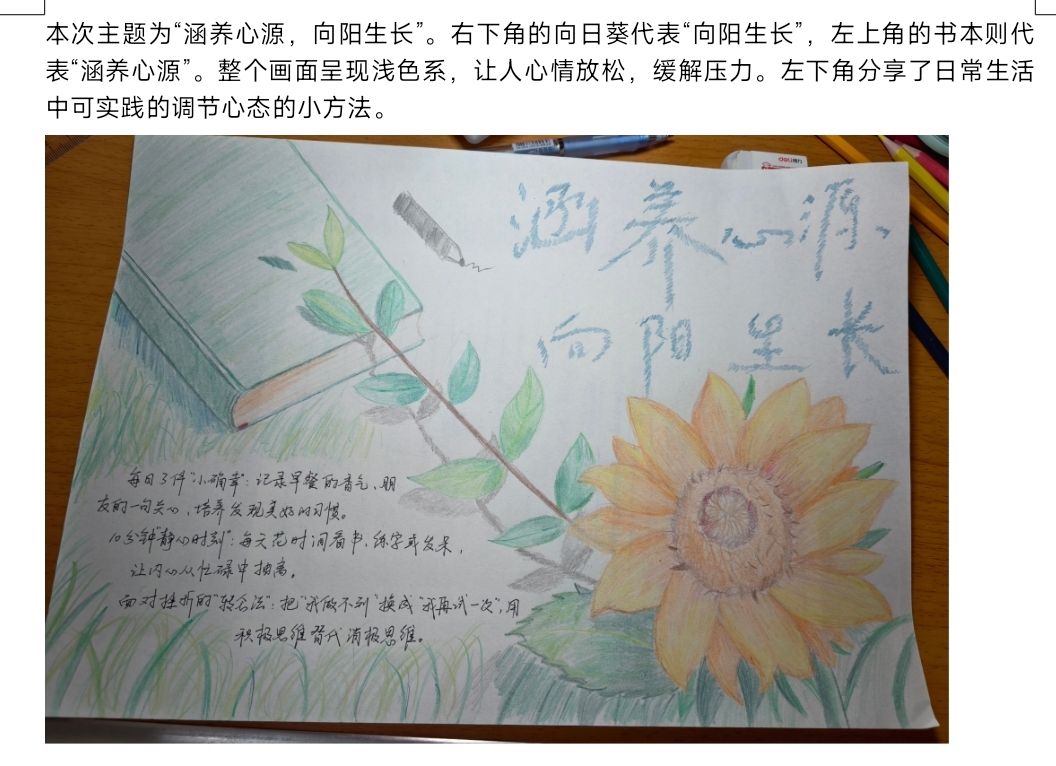 本次主题为“涵养心源，向阳生长”。右下角的向日葵代表“向阳生长”，左上角的书本则代
表“涵养心源”。整个画面呈现浅色系，让人心情放松，缓解压力。左下角分享了日常生活
中可实践的调节心态的小方法。
deli得力
涵养心源、
向阳生长
每日3件“小确幸”：记录早餐的香气、朋
友的一句关心，培养发现美好的习惯。
10分钟“静心时刻”：每天花时间看书、练字或发呆，
让内心从忙碌中抽离。
面对挫折的“转念法”：把“我做不到”换成“我再试一次”，用
积极思维替代消极思维。